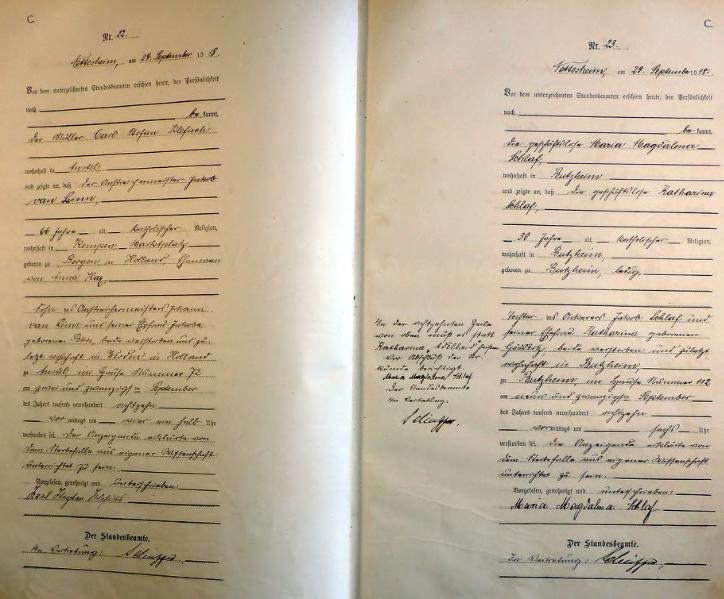 C.
Nr. 22.
Nettesheim, am 24. September 1918.
Vor dem unterzeichneten Standesbeamten erschien heute, der Persönlichkeit
nach
be kannt,
der Müller Carl Stefan
wohnhaft in Anstel,
und zeigte an, daß der Anstreichermeister Jakob
van
66 Jahre alt, katholischer Religion,
wohnhaft in Kempen Marktplatz
geboren zu Bergen in Holland, Ehemann
von Anna
Sohn des Anstreichermeisters Johann
van und seiner Ehefrau Jakoba
geborenen beide verstorben und zu-
letzt wohnhaft in in Holland
zu Anstel, im Hause Nummer 72
am zwei und zwanzigsten September
des Jahres tausend neunhundert achtzehn
vor mittags um vier ein halb Uhr
verstorben sei. Der Anzeigende erklärte von
dem Sterbefalle aus eigener Wissenschaft
unterrichtet zu sein.
Vorgelesen, genehmigt und unterschrieben
Karl Stephan
Der Standesbeamte.
In Vertretung:
C.
Nr. 23.
Nettesheim, am 29. September 1918.
Vor dem unterzeichneten Standesbeamten erschien heute, der Persönlichkeit
nach
be kannt,
die geschäftslose Maria Magdalena
Schlaf,
wohnhaft in Butzheim
und zeigte an, daß die geschäftslose Katharina
Schlaf,
30 Jahre alt, katholischer Religion,
wohnhaft in Butzheim,
geboren zu Butzheim, ledig,
Tochter des Ackerers Jakob Schlaf und
seiner Ehefrau Katharina geborenen
beide verstorben und zuletzt
wohnhaft in Butzheim,
zu Butzheim, im Hause Nummer 112
am neun und zwanzigsten September
des Jahres tausend neunhundert achtzehn
vormittags um sechs Uhr
verstorben sei. Die Anzeigende erklärte von
dem Sterbefalle aus eigener Wissenschaft
unterrichtet zu sein.
Vorgelesen, genehmigt und unterschrieben:
Maria Magdalena Schlaf
Der Standesbeamte.
In Vertretung:
In der achtzehnten Zeile
von oben muß es statt
Katharina, heißen
Vor Abschluß der Ur-
kunde berichtigt
Maria Magdalena Schlaf
Der Standesbeamte
In Vertretung.